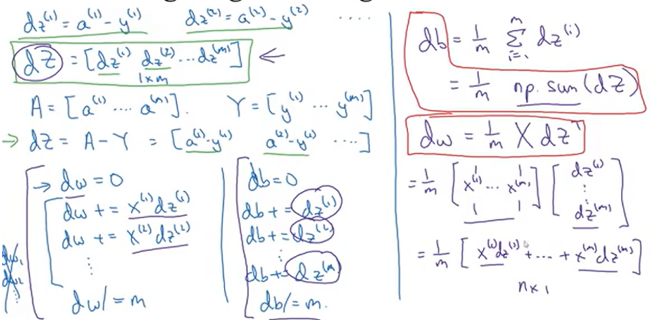 dz⁽¹⁾ = a⁽¹⁾ - y⁽¹⁾    dz⁽²⁾ = a⁽²⁾ - y⁽²⁾ ....
dZ = [dz⁽¹⁾ dz⁽²⁾ ... dz⁽ᵐ⁾] ←
1×m
A = [a⁽¹⁾ ... a⁽ᵐ⁾].    Y = [y⁽¹⁾ ... y⁽ᵐ⁾]
→ dZ = A - Y = [a⁽¹⁾-y⁽¹⁾ a⁽²⁾-y⁽²⁾ ....]
→ dw = 0
dw += x⁽¹⁾dz⁽¹⁾
dw += x⁽²⁾dz⁽²⁾
⋮
dw /= m
dw₁
dw₂
db = 0
db += dz⁽¹⁾
db += dz⁽²⁾
⋮
db += dz⁽ᵐ⁾
db /= m.
db = 1/m Σᵢ₌₁ᵐ dz⁽ⁱ⁾
= 1/m np.sum(dZ)
dw = 1/m X dZᵀ
= 1/m [x⁽¹⁾ ... x⁽ᵐ⁾] [dz⁽¹⁾ ⋮ dz⁽ᵐ⁾]
= 1/m [x⁽¹⁾dz⁽¹⁾ + ... + x⁽ᵐ⁾dz⁽ᵐ⁾]
n×1